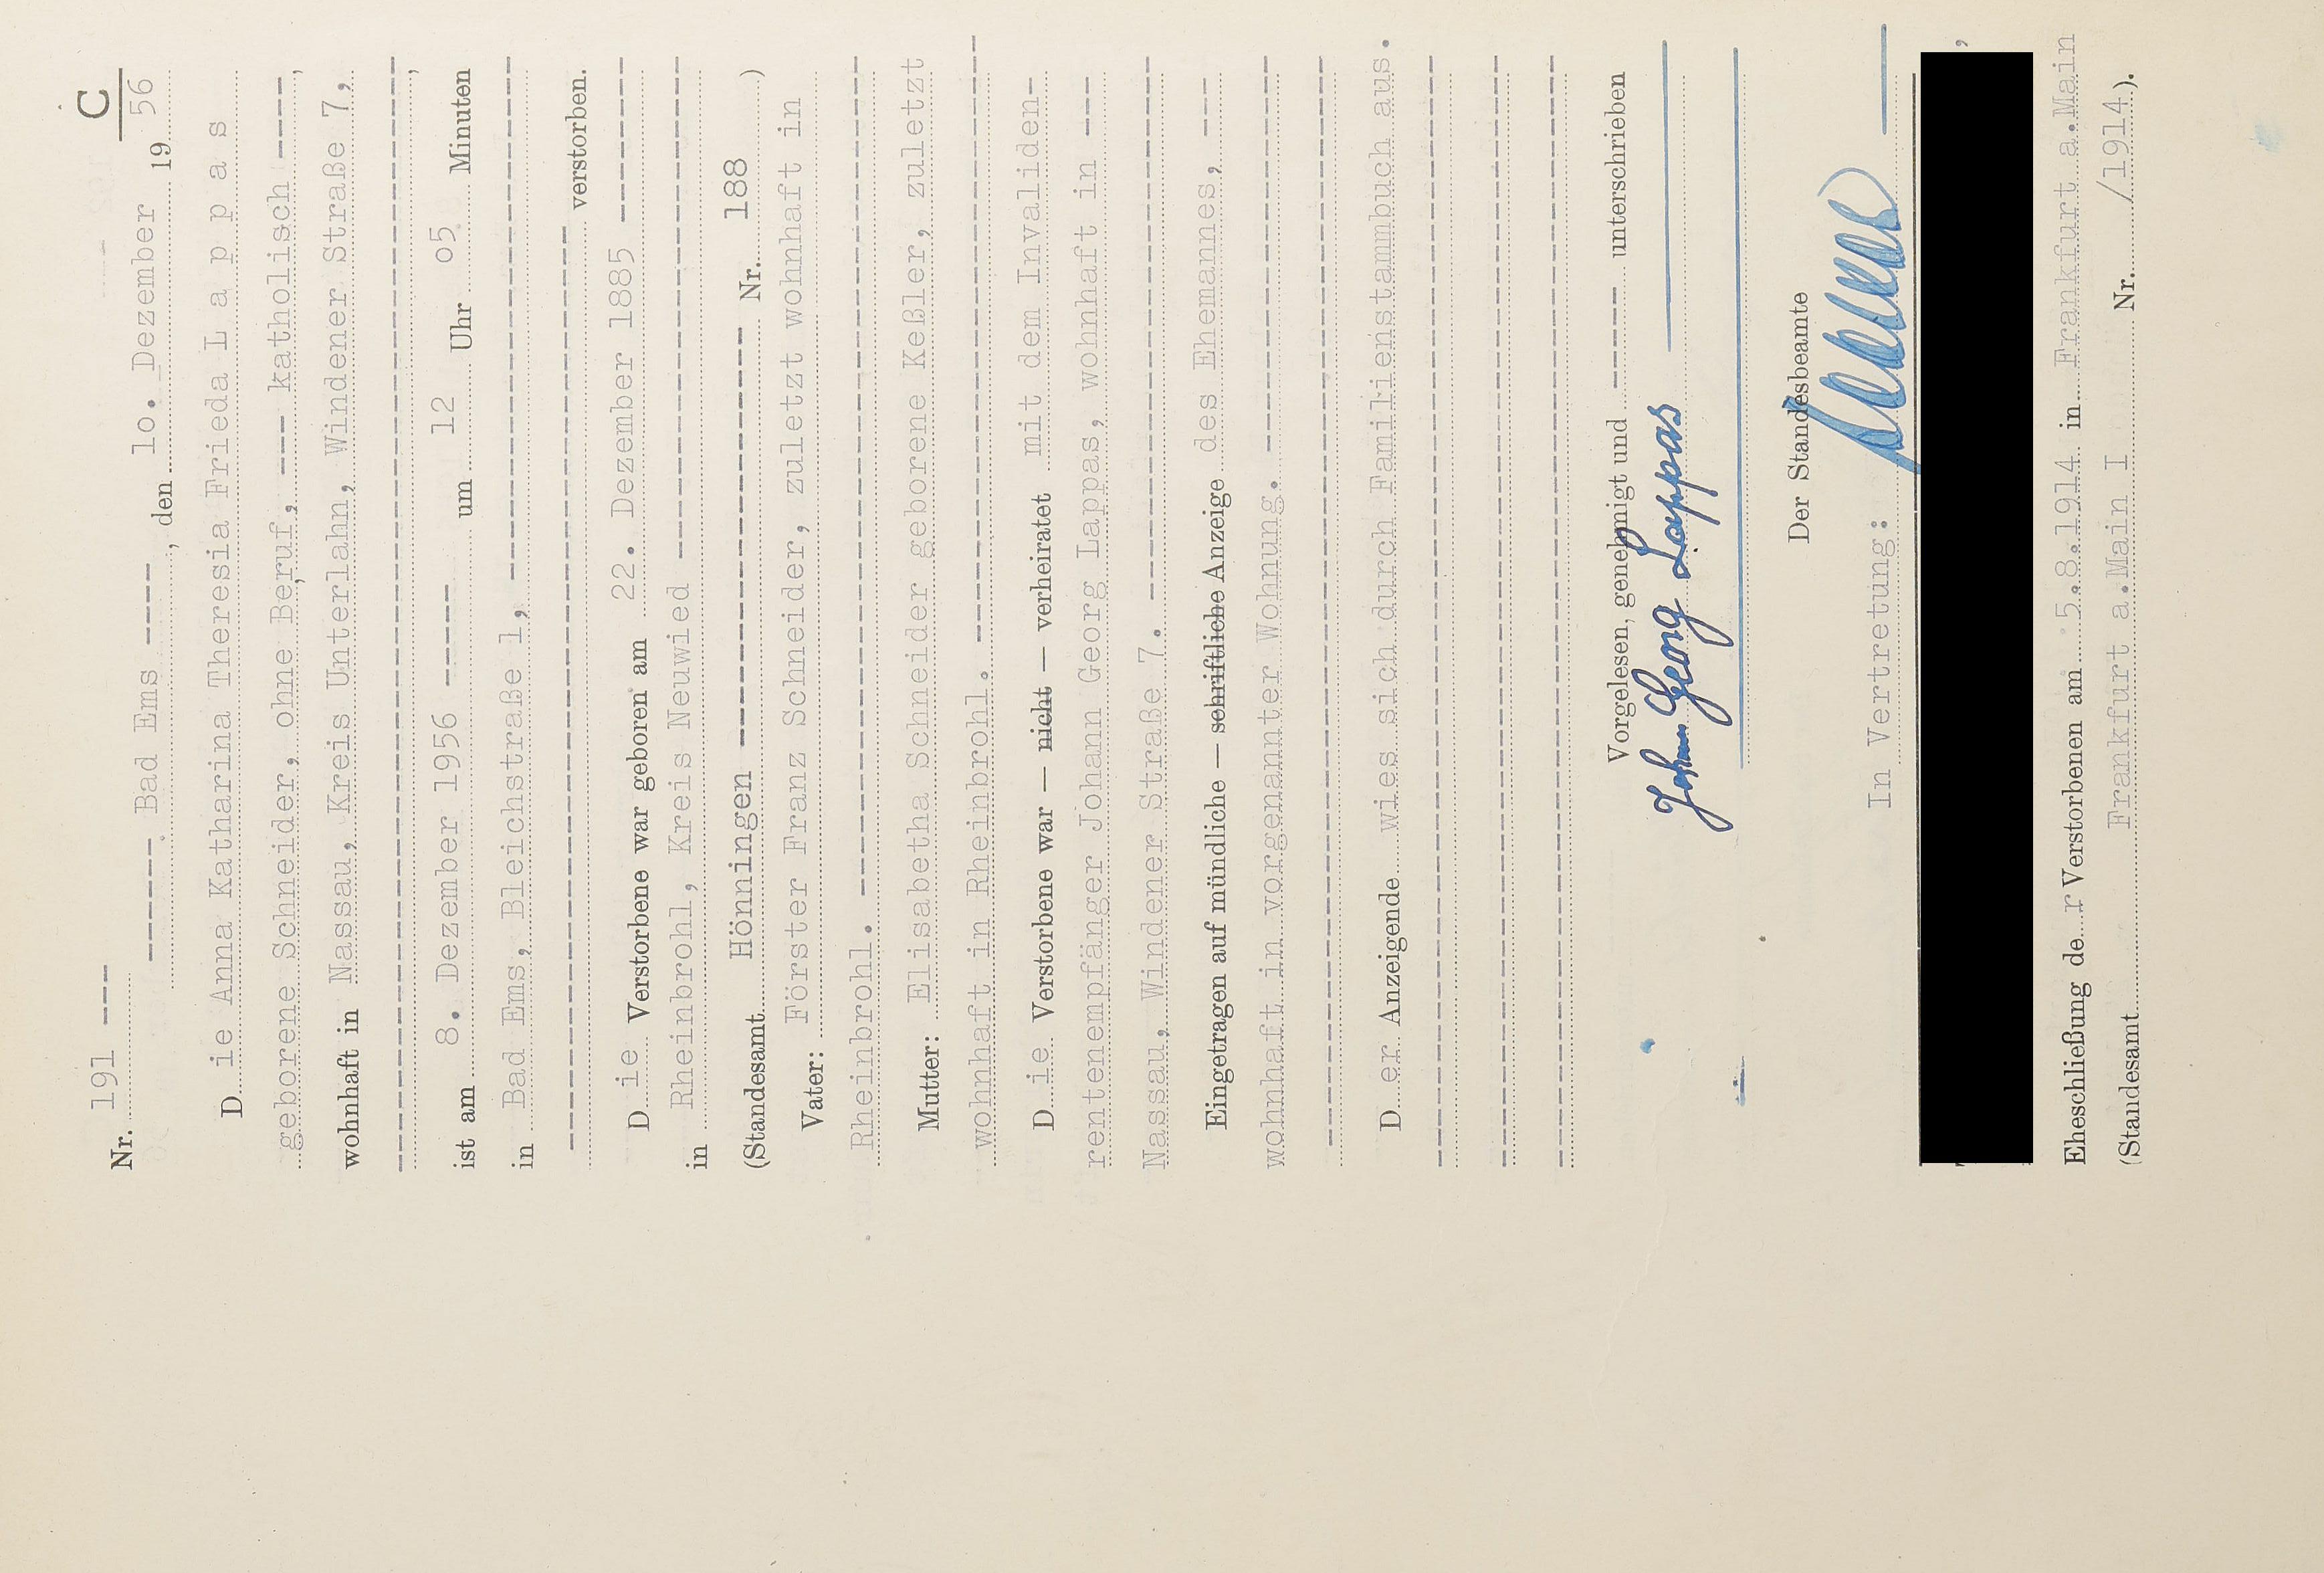 C
Nr. 191 ---
------- Bad Ems -----, den 1o. Dezember 19 56
Die Anna Katharina Theresia Frieda L a p p a s
geborene Schneider, ohne Beruf, --- katholisch ----,
wohnhaft in Nassau, Kreis Unterlahn, Windener Straße 7,
ist am 8. Dezember 1956 ------ um 12 Uhr o5 Minuten
in Bad Ems, Bleichstraße 1,
verstorben.
Die Verstorbene war geboren am 22. Dezember 1885
in Rheinbrohl, Kreis Neuwied
(Standesamt Hönningen Nr. 188 )
Vater: Förster Franz Schneider, zuletzt wohnhaft in
Rheinbrohl.
Mutter: Elisabetha Schneider geborene Keßler, zuletzt
wohnhaft in Rheinbrohl.
Die Verstorbene war — nicht — verheiratet mit dem Invaliden-
rentenempfänger Johann Georg Lappas, wohnhaft in ---
Nassau, Windener Straße 7.
Eingetragen auf mündliche — schriftliche Anzeige des Ehemannes, ---
wohnhaft in vorgenannter Wohnung.
Der Anzeigende wies sich durch Familienstammbuch aus.
Vorgelesen, genehmigt und ----- unterschrieben
Johann Georg Lappas
Der Standesbeamte
In Vertretung:
Eheschließung der Verstorbenen am 5.8.1914 in Frankfurt a.Main
(Standesamt Frankfurt a.Main I Nr. /1914).